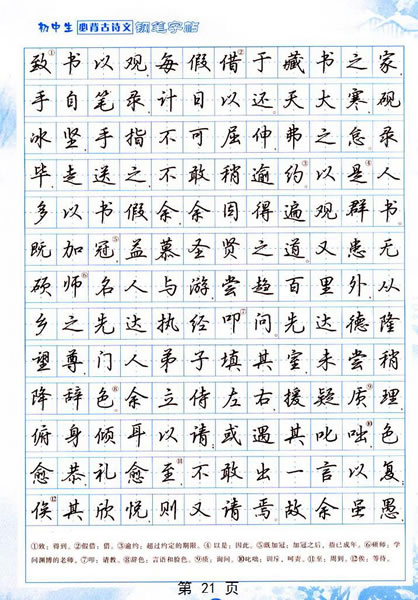 初中生 必背古诗文 钢笔字帖
致书以观每假借②于藏书之家
手自笔录计日以还天大寒砚
冰坚手指不可屈伸弗之怠录
毕走送之不敢稍逾约③以是④人
多以书假余余因得遍观群书
既加冠⑤益慕圣贤之道又患无
硕师⑥名人与游尝趋百里外从
乡之先达执经叩⑦问先达德隆
望尊门人弟子填其室未尝稍
降辞色⑧余立侍左右援疑质⑨理
俯身倾耳以请;或遇其叱咄⑩色
愈恭礼愈至⑪不敢出一言以复
俟⑫其欣悦则又请焉故余虽愚
①致:得到。②假借:借。③逾约:超过约定的期限。④以是:因此。⑤既加冠:加冠之后,指已成年。⑥硕师:学
问渊博的老师。⑦叩:请教。⑧辞色:言语和脸色。⑨质:询问。⑩叱咄:训斥,呵责。⑪至:周到。⑫俟:等待。
第 21 页